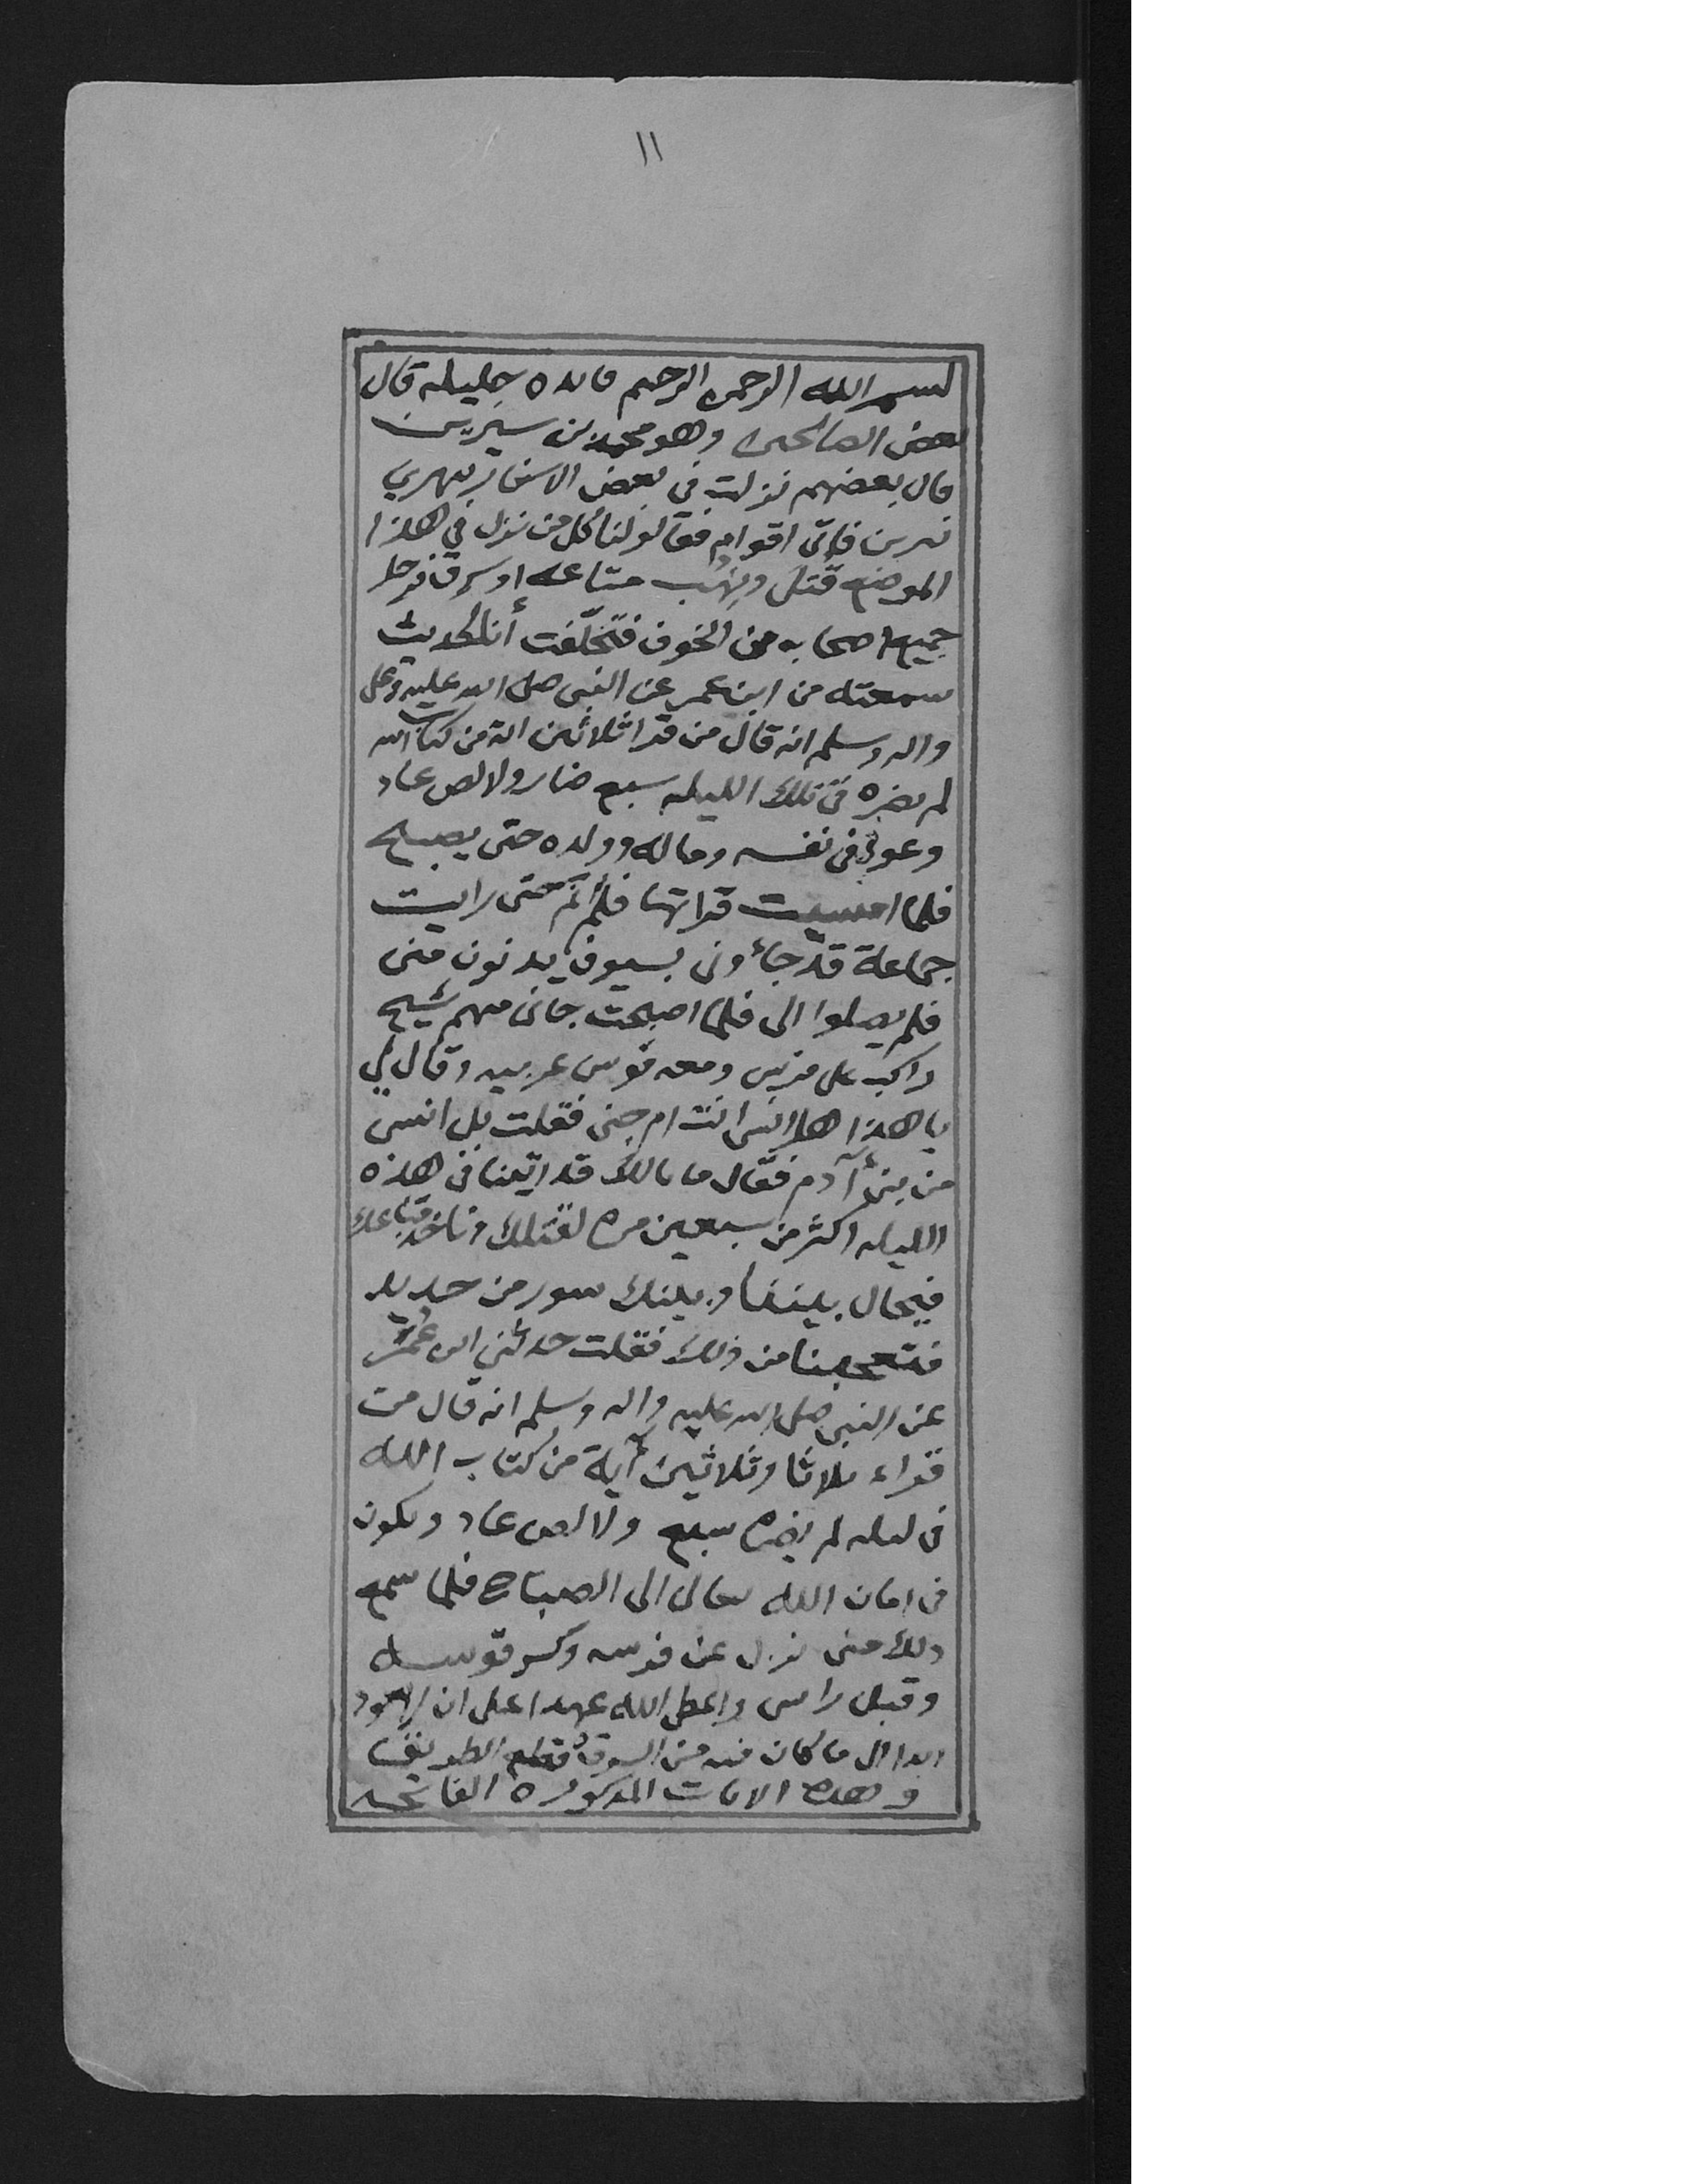 ١١
بسم الله الرحمن الرحيم فائده جليله قال
بعض الصالحين وهو محمد بن سيرين
قال بعضهم نزلت في بعض الاسفار بنهري
تيرين فاتى اقوام فقالو لنا كل من نزل في هاذا
الموضع قتل ونهب متاعه او سرق فرحل
جميع اصحابه من الخوف فتخلّفت أنا لحديث
سمعته من ابن عمر عن النبي صلى الله عليه وعلى
واله وسلم انه قال من قرا ثلاثين اية من كتاب الله
لم يضره في تلك الليله سبع ضار ولا لص عاد
وعوفي في نفسه وماله وولده حتى يصبح
فلما امسيت قراتها فلم أنم حتى رايت
جماعة قد جاءوني بسيوف يدنون مني
فلم يصلوا الي فلما اصبحت جاني منهم شيخ
راكب على فرس ومعه قوس عربيه وقال لي
يا هاذا هل انسي انت ام جني فقلت بل انسي
من بني آدم فقال ما بالك قد اتينا في هاذه
الليله اكثر من سبعين مره لنقتلك وناخذ متاعك
فيحال بيننا وبينك سور من حديد
فتعجبنا من ذلك فقلت حدثني ابن عُمَر
عن النبي صلى الله عليه واله وسلم انه قال من
قراء ثلاثا وثلاثين آية من كتاب الله
في ليله لم يضره سبع ولا لص عاد ويكون
في امان الله تعالى الى الصباح فلما سمع
ذلك مني نزل عن فرسه وكسر قوسه
وقبل راسي واعطى الله عهدا على ان لا يعود
ابدا الى ما كان فيه من السرقه وقطع الطريق
وهذه الايات المذكوره الفاتحه